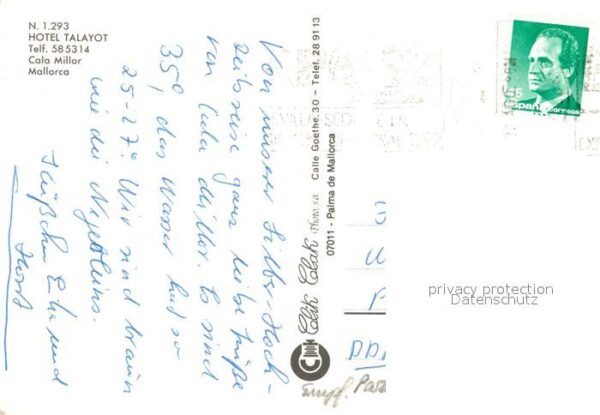 N. 1.293
HOTEL TALAYOT
Telf. 585314
Cala Millor
Mallorca
Von unserer Silber-Hoch-
zeitsreise ganz liebe Grüße
von Cala Millor. Es sind
35°, das Wasser hat so
25-27°. Wir sind braun
wie die Negerleins.
Tschüßchen Erika und
Horst
Clik Clak Photo, s.a. Calle Goethe, 30 – Telef. 28 91 13
07011 - Palma de Mallorca
45
España correos
privacy protection
Datenschutz
DDR
Empf. Par